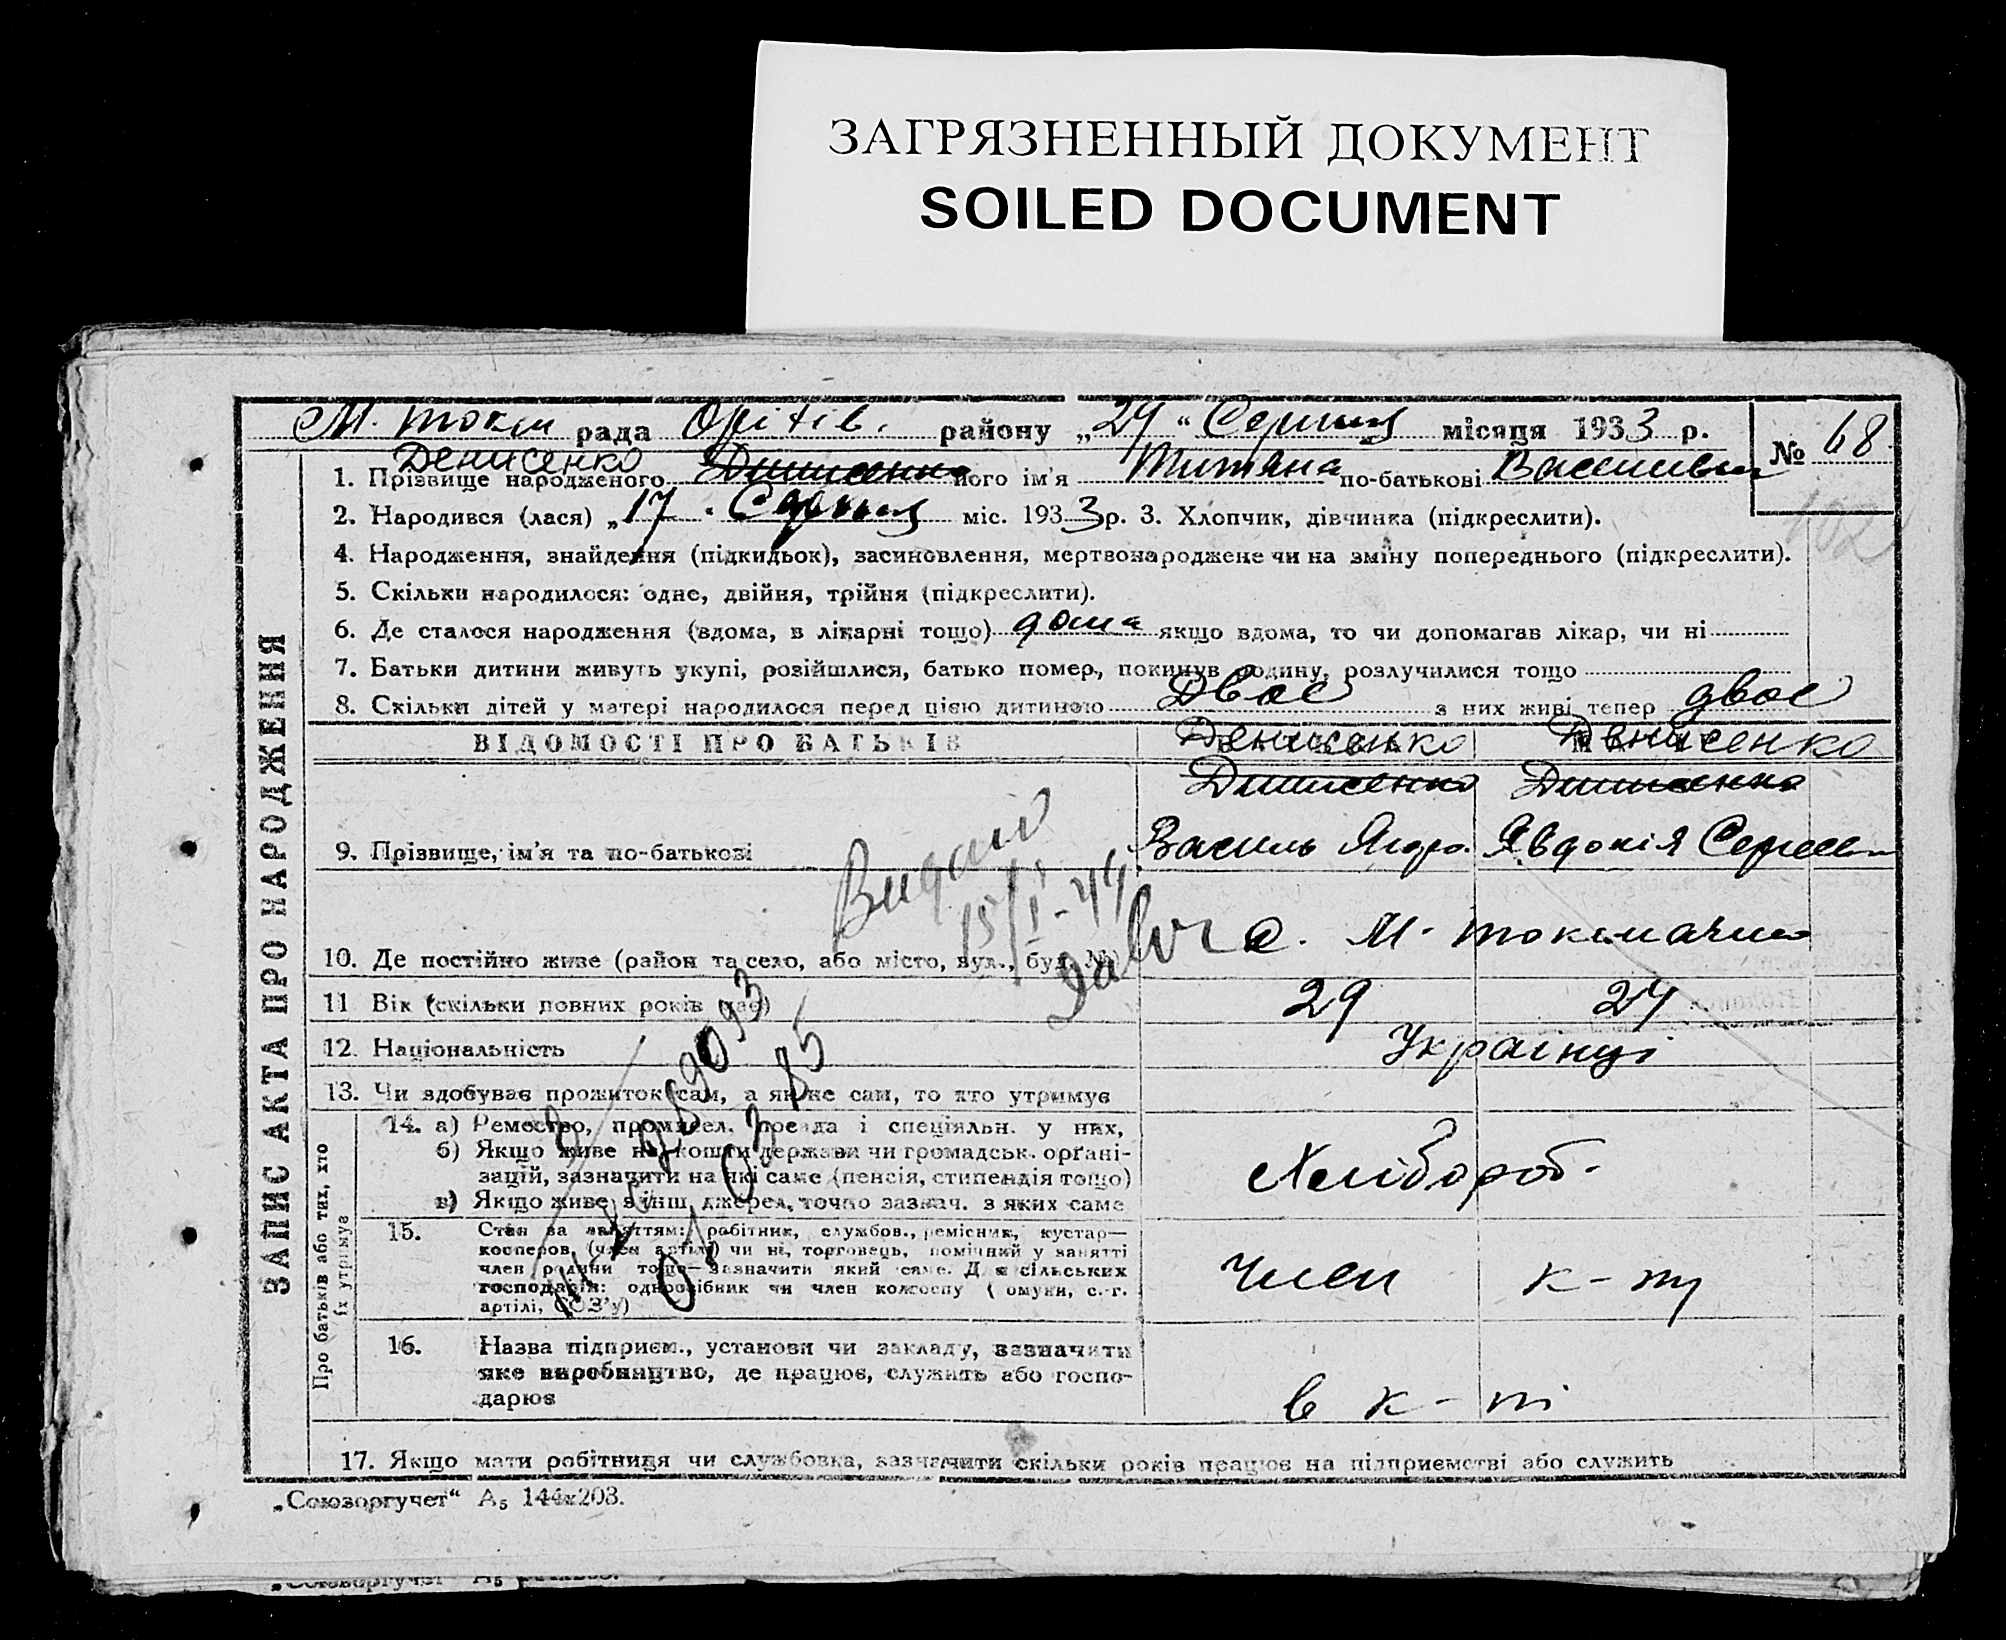 ЗАГРЯЗНЕННЫЙ ДОКУМЕНТ
SOILED DOCUMENT
М. токм рада Оріхів. району „29“ Серпня місяця 1933 р.
№ 68.
Денисенко
1. Прізвище народженого його ім'я Титяна по-батькові Васильвна
2. Народився (лася) „17“ Серпня міс. 1933 р. 3. Хлопчик, дівчинка (підкреслити).
4. Народження, знайдення (підкидьок), засиновлення, мертвонароджене чи на зміну попереднього (підкреслити).
5. Скільки народилося: одне, двійня, трійня (підкреслити).
6. Де сталося народження (вдома, в лікарні тощо) дома якщо вдома, то чи допомагав лікар, чи ні
7. Батьки дитини живуть укупі, розійшлися, батько помер, покинув родину, розлучилися тощо
8. Скільки дітей у матері народилося перед цією дитиною Двоє з них живі тепер двоє
ВІДОМОСТІ ПРО БАТЬКІВ
Денисенко Денисенко
9. Прізвище, ім'я та по-батькові Василь Явдокія
Видано
15/I-44
10. Де постійно живе (район та село, або місто, вул., буд. №) с. М-токмачка
11 Вік (скільки повних років має) 29 24
12. Національність Українці
13. Чи здобуває прожиток сам, а як не сам, то хто утримує
14. а) Ремество, промисел, посада і спеціяльн. у них,
б) Якщо живе на кошти держави чи громадськ. органі-
зацій, зазначити на які саме (пенсія, стипендія тощо)
в) Якщо живе з інш. джерел, точно зазнач. з яких саме
Хлібороб.
15. Стан за заняттям: робітник, службов., ремісник, кустар—
кооперов. (член артілі) чи ні, торговець, помічний у занятті
член родини тощо—зазначити який саме. Для сільських
господарів: одноосібник чи член колгоспу (омуни, с.-г.
артілі, СОЗ'у)
Член к-пу
16. Назва підприєм., установи чи закладу, зазначити
яке виробництво, де працює, служить або госпо-
дарює
в к-пі
17. Якщо мати робітниця чи службовка, зазначити скільки років працює на підприємстві або служить
ЗАПИС АКТА ПРО НАРОДЖЕННЯ
Про батьків або тих, хто
їх утримує
„Союзоргучет“ А₅ 144х203.